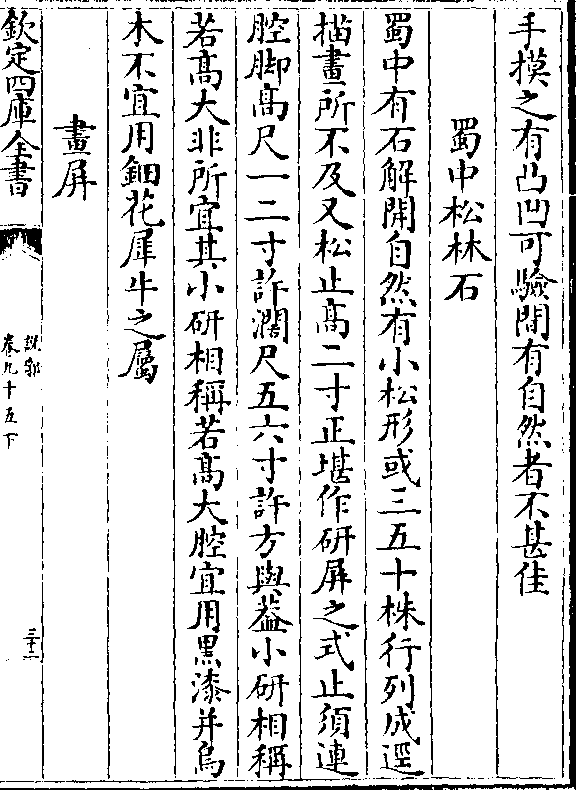 手摸之有凸凹可驗間有自然者不甚佳
蜀中松林石
蜀中有石解開自然有小松形或三五十株行列成逕
描畫所不及又松止高二寸正堪作研屏之式止須連
腔脚高尺一二寸許濶尺五六寸許方與葢小研相稱
若高大非所宜其小研相稱若高大腔宜用黒漆并烏
木不宜用鈿花犀牛之屬
畫屏
欽定四庫全書
說郛
卷九十五下
三十二